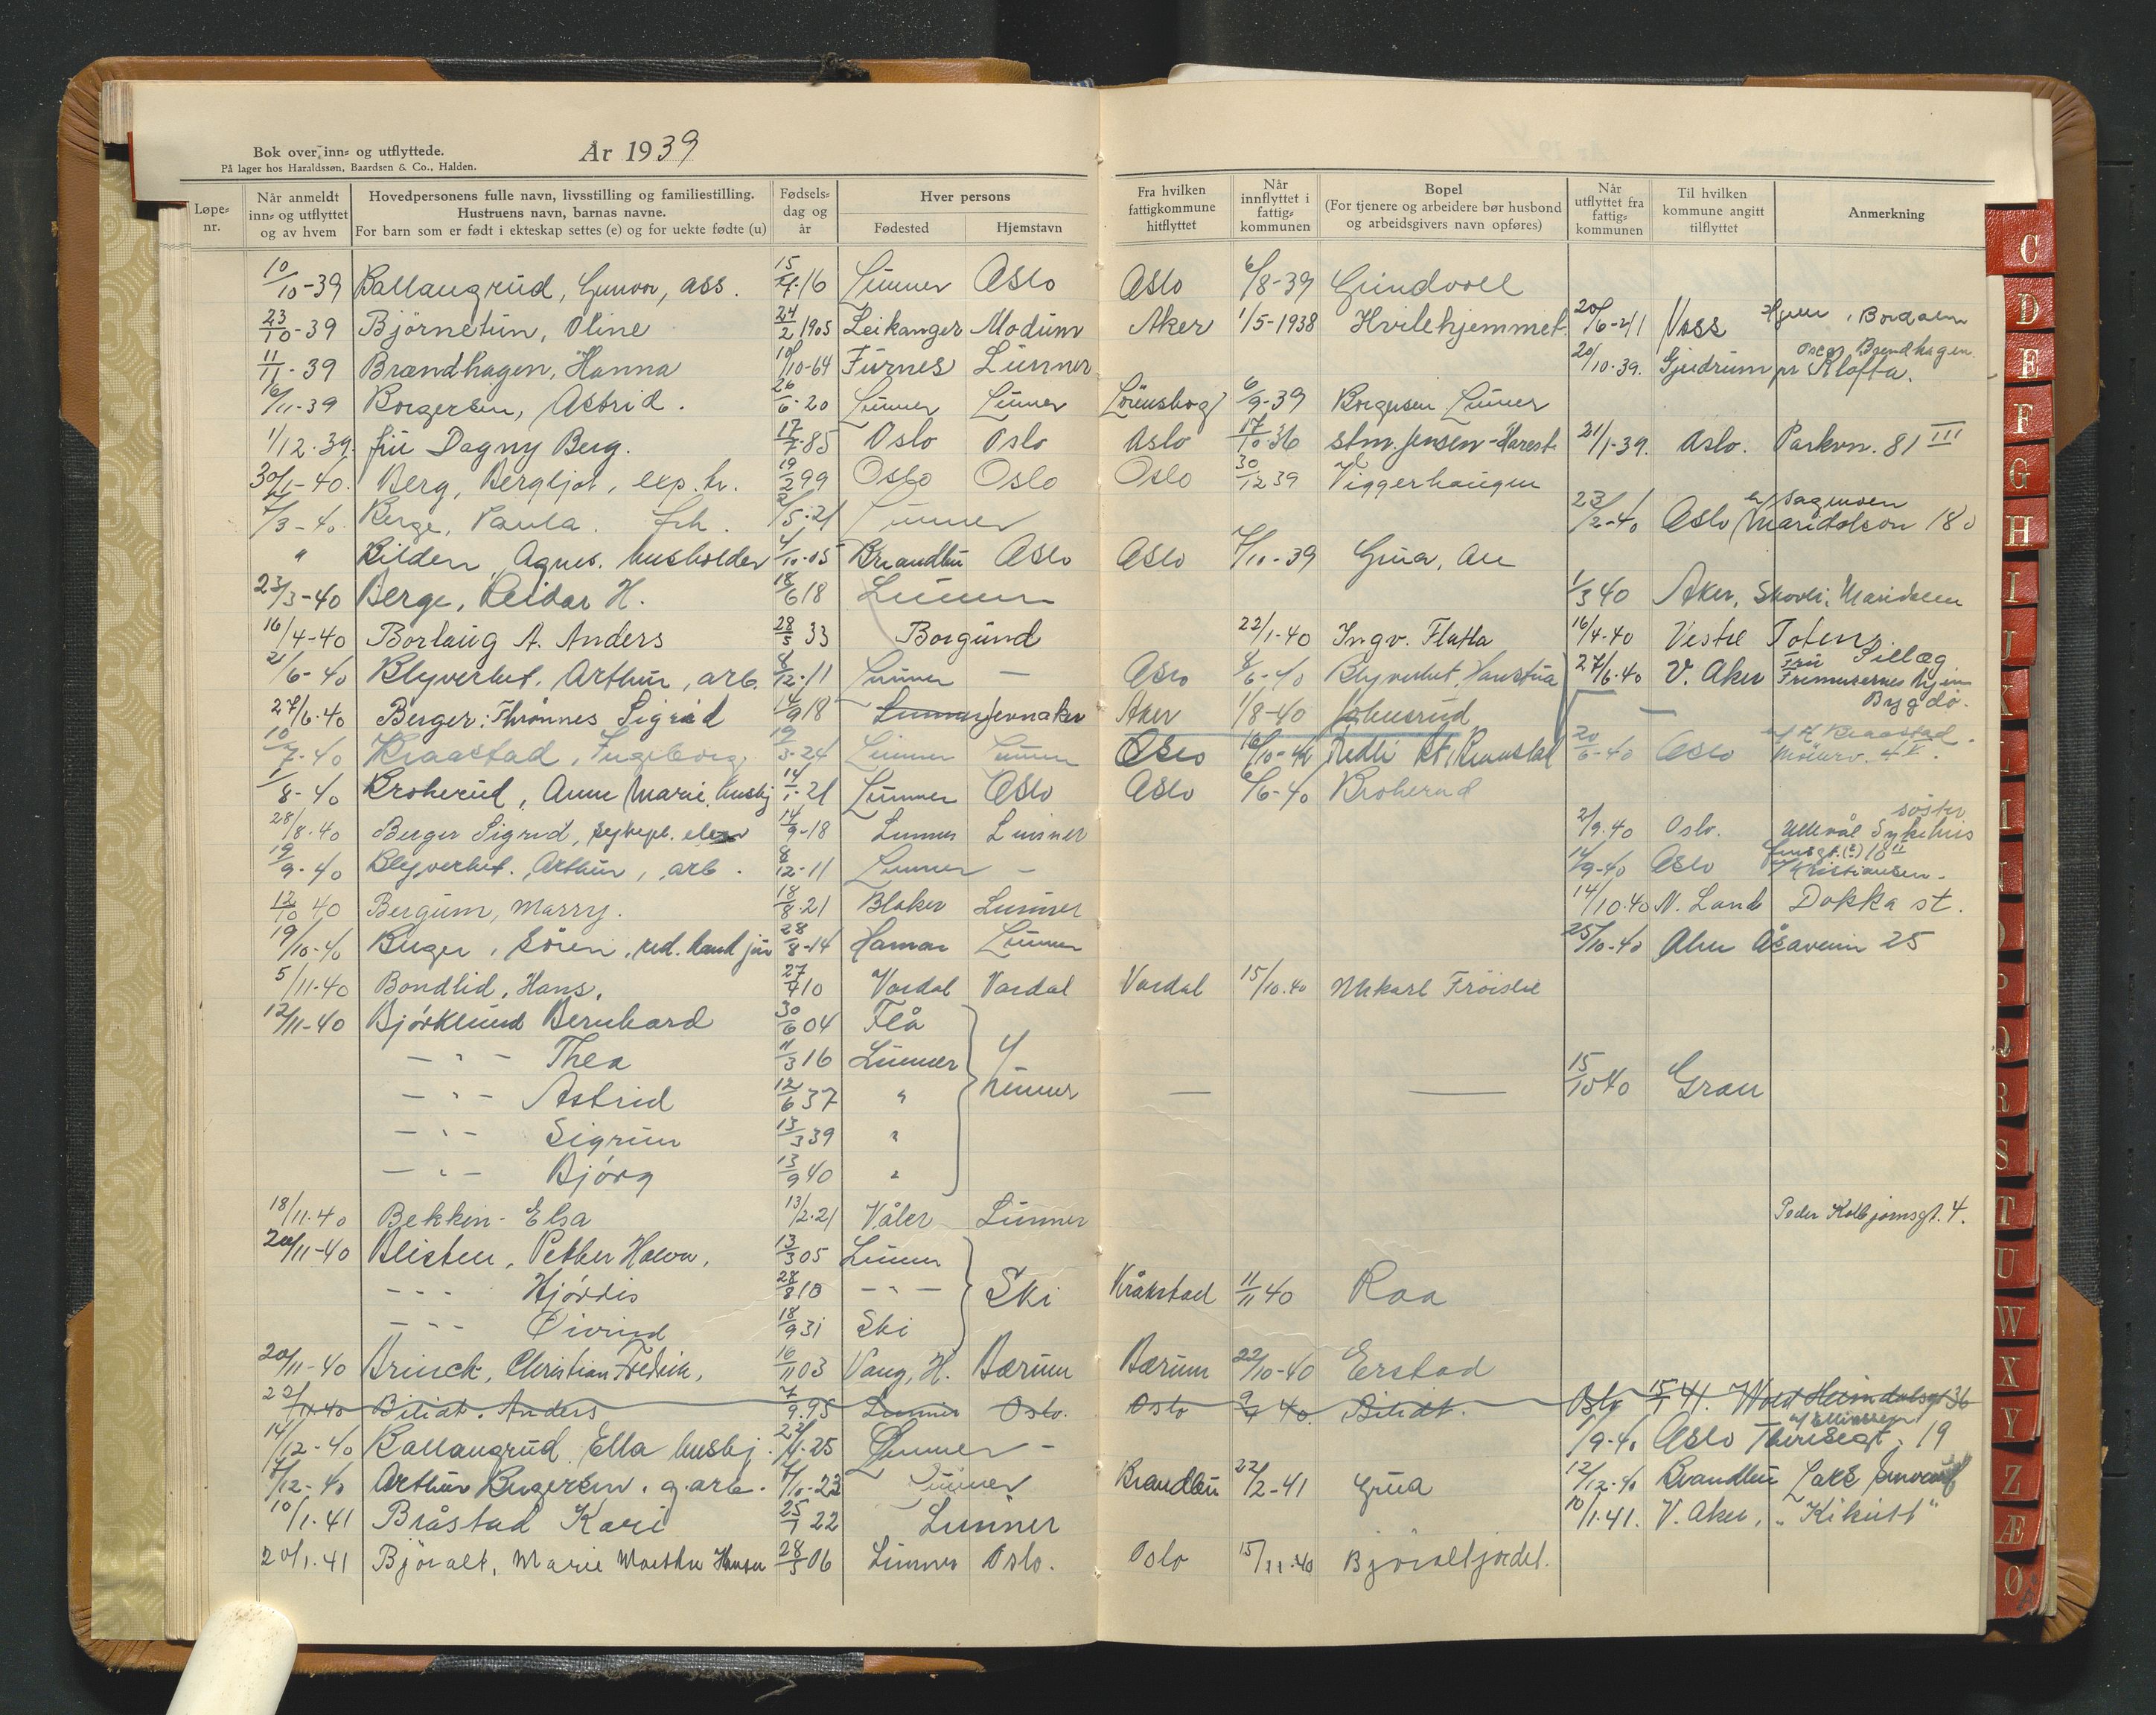 Bok over inn= og utflyttede.
På lager hos Haraldssøn, Baardsen & Co., Halden.
År 1939
Løpe= nr.
Når anmeldt inn= og utflyttet og av hvem
Hovedpersonens fulle navn, livsstilling og familiestilling. Hustruens navn, barnas navne. For barn som er født i ekteskap settes (e) og for uekte fødte (u)
Fødsels= dag og år
Hver persons
Fødested
Hjemstavn
Fra hvilken fattigkommune hitflyttet
Når innflyttet i fattig= kommunen
Bopel (For tjenere og arbeidere bør husbond og arbeidsgivers navn opføres)
Når utflyttet fra fattig= kommunen
Til hvilken kommune angitt tilflyttet
Anmerkning
10/10-39 Ballangrud, Gunvor, ass. 15/4-16 Lunner Oslo Oslo 6/8-39 Grindvoll
23/10-39 Björnetun, Oline 24/2 1905 Leikanger Modum Aker 1/5-1938 Hvilehjemmet 20/6-41 Voss
11/11-39 Brændhagen, Hanna 10/10-64 Furnes Lunner 20/10-39. Gjudrum pr Kløfta. Oscar Brendhagen
16/11-39 Borgersen, Astrid. 26/6-20 Lunner Lunner Lörenskog 6/9-39 Borgersen Lunner
1/12-39. fru Dagny Berg. 17/7-85 Oslo Oslo Oslo 17/10-36 stm. Jensen-Harest. 21/1-39. Oslo. Parkvn. 81 III
30/1-40. Berg, Bergljot, exp. tr. 19/2 99 Oslo Oslo Oslo 30/12 39 Viggerhaugen
7/3-40 Berge, Paula. frk. 2/5-21 Lunner 23/2-40 Oslo Maridalsvn 180
" Bilden, Agnes. husholder 4/10-05 Brandbu Oslo Oslo 7/10-39 Grua, Au
23/3-40 Berge, Reidar H. 18/6 18 Lunner 1/3 40 Aker, Skovli, Maridalen
16/4-40 Borlaug A. Anders 28/5 33 Borgund 22/1-40 Ingv. Flatla 16/4-40 Vestre Toten
21/6-40 Blyverket, Arthur, arb. 8/12-11 Lunner — Oslo 8/6-40 Blyverket, Hanstua 27/6-40 V. Aker Fru Sillæg Frimurernes hjem Bygdö.
27/6-40 Berger: Thrönnes Sigrid 14/9 18 Lunner Jevnaker Aker 1/8-40 —
10/7-40 Braastad, Ingeborg 19/3-24 Lunner Lunner Oslo 16/10-42 20/6-40 Oslo Braastad
1/8-40 Broherud, Anne Marie, husbj 14/1-21 Lunner Oslo Oslo 6/6-40 Broherud
28/8-40 Berger Sigrid, sykepl. elev 14/9-18 Lunner Lunner 2/9-40 Oslo. söster Ullevål Sykehus
19/9-40 Blyverket. Arthur, arb. 8/12-11 Lunner - 14/9-40 Oslo Kristiansen.
12/10 40 Bergum, Marry. 18/8-21 Blaker Lunner 14/10-40 N. Land Dokka st.
19/10-40 Berger, Sören, 28/8-14 Hamar Lunner 25/10-40 Aker Åsaveien 25
5/11-40 Bondlid, Hans. 27/7 10 Vardal Vardal Vardal 15/10-40
12/11-40 Björklund Bernhard 30/6 04 Flå
— " — Thea 11/3 16 Lunner
— " — Astrid 12/6 37 " Lunner — — 15/10 40 Gran
— " — Sigrun 13/3 39 "
— " — Björg 13/9 40 "
18/11-40 Bekken - Elsa 13/2-21 Våler Lunner Peder Kolbjørnsgt. 4.
20/11-40 Blisten, Petter Halvor, 13/3 05 Lunner
- " - Hjördis 28/8 10 - " - Ski Kråkstad 11/11 40 Roa
- " - Öivind 18/9 31 Ski
20/11-40 Brinch, Christian Fredrik, 16/11 03 Vang, H. Bærum Bærum 22/10-40 Erstad
22/11 40 Bilidt. Anders 7/9.95 Lunner Oslo. Oslo 9/4 40. Bilidt. Oslo 15/1 41. Heimdalsgt 36
14/12-40 Ballangrud. Ella husbj. 22/4-25 Lunner - 1/9-40 Oslo Theresegt. 19
7/12-40 Arthur Bergersen. g. arb. 7/10-23 Lunner Brandbu 22/2-41 Grua 12/12-40 Brandbu
10/1-41 Bråstad Kari 25/7 22 Lunner 10/1-41. V. Aker, "Kikutt"
20/1.41 Björalt, Marie Marthe Hansen 28/5 06 Lunner Oslo. Oslo 15/11-40 Björaltjordet.
C
D
E
F
G
H
I
J
K
L
M
N
O
P
Q
R
S
T
U
W
X
Y
Z
Æ
Ø
Å